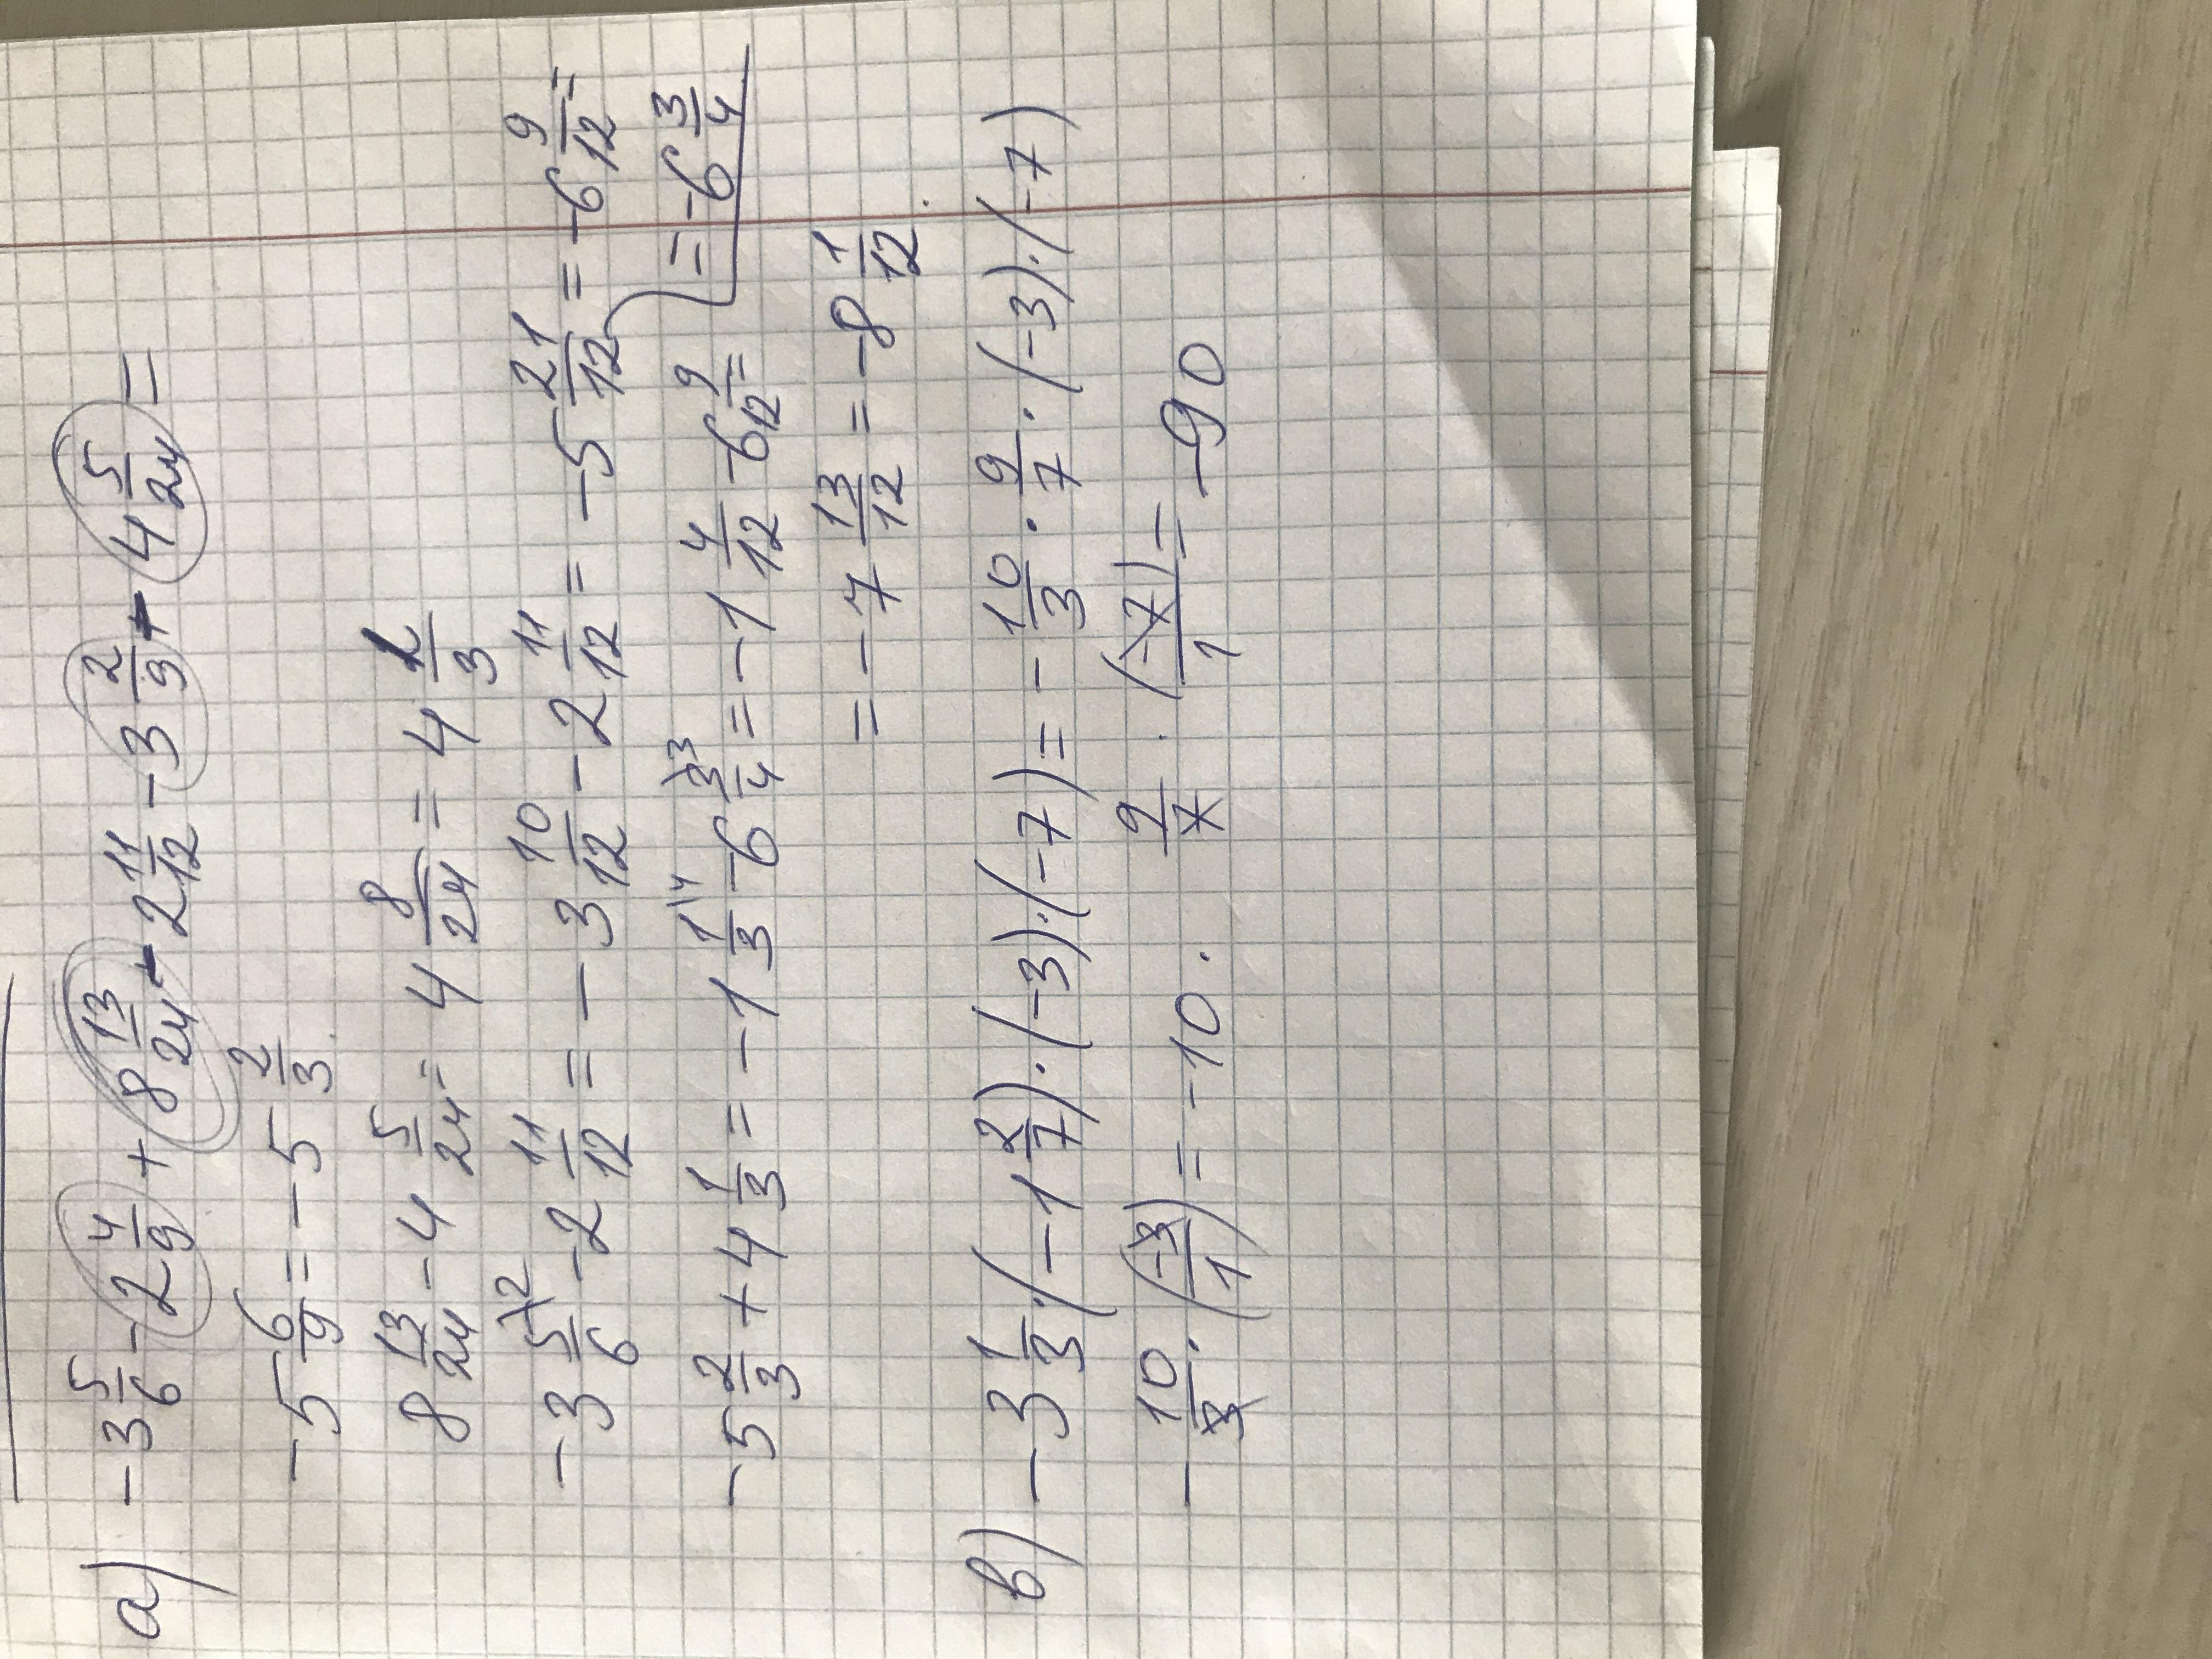 а) -3 5/6 - 2 4/9 + 8 13/24 - 2 11/12 - 3 2/9 - 4 5/24 =
-5 6/9 = -5 2/3
8 13/24 - 4 5/24 = 4 8/24 = 4 1/3
-3 5/6 \2 - 2 11/12 = -3 10/12 - 2 11/12 = -5 21/12 = -6 9/12 =
= -6 3/4
-5 2/3 + 4 1/3 = -1 1/3 \4 - 6 3/4 \3 = -1 4/12 - 6 9/12 =
= -7 13/12 = -8 1/12
в) -3 1/3 · (-1 2/7) · (-3) · (-7) = - 10/3 · 9/7 · (-3) · (-7)
- 10/3 · (-3/1) = -10 · 9/7 · (-7)/1 = -90